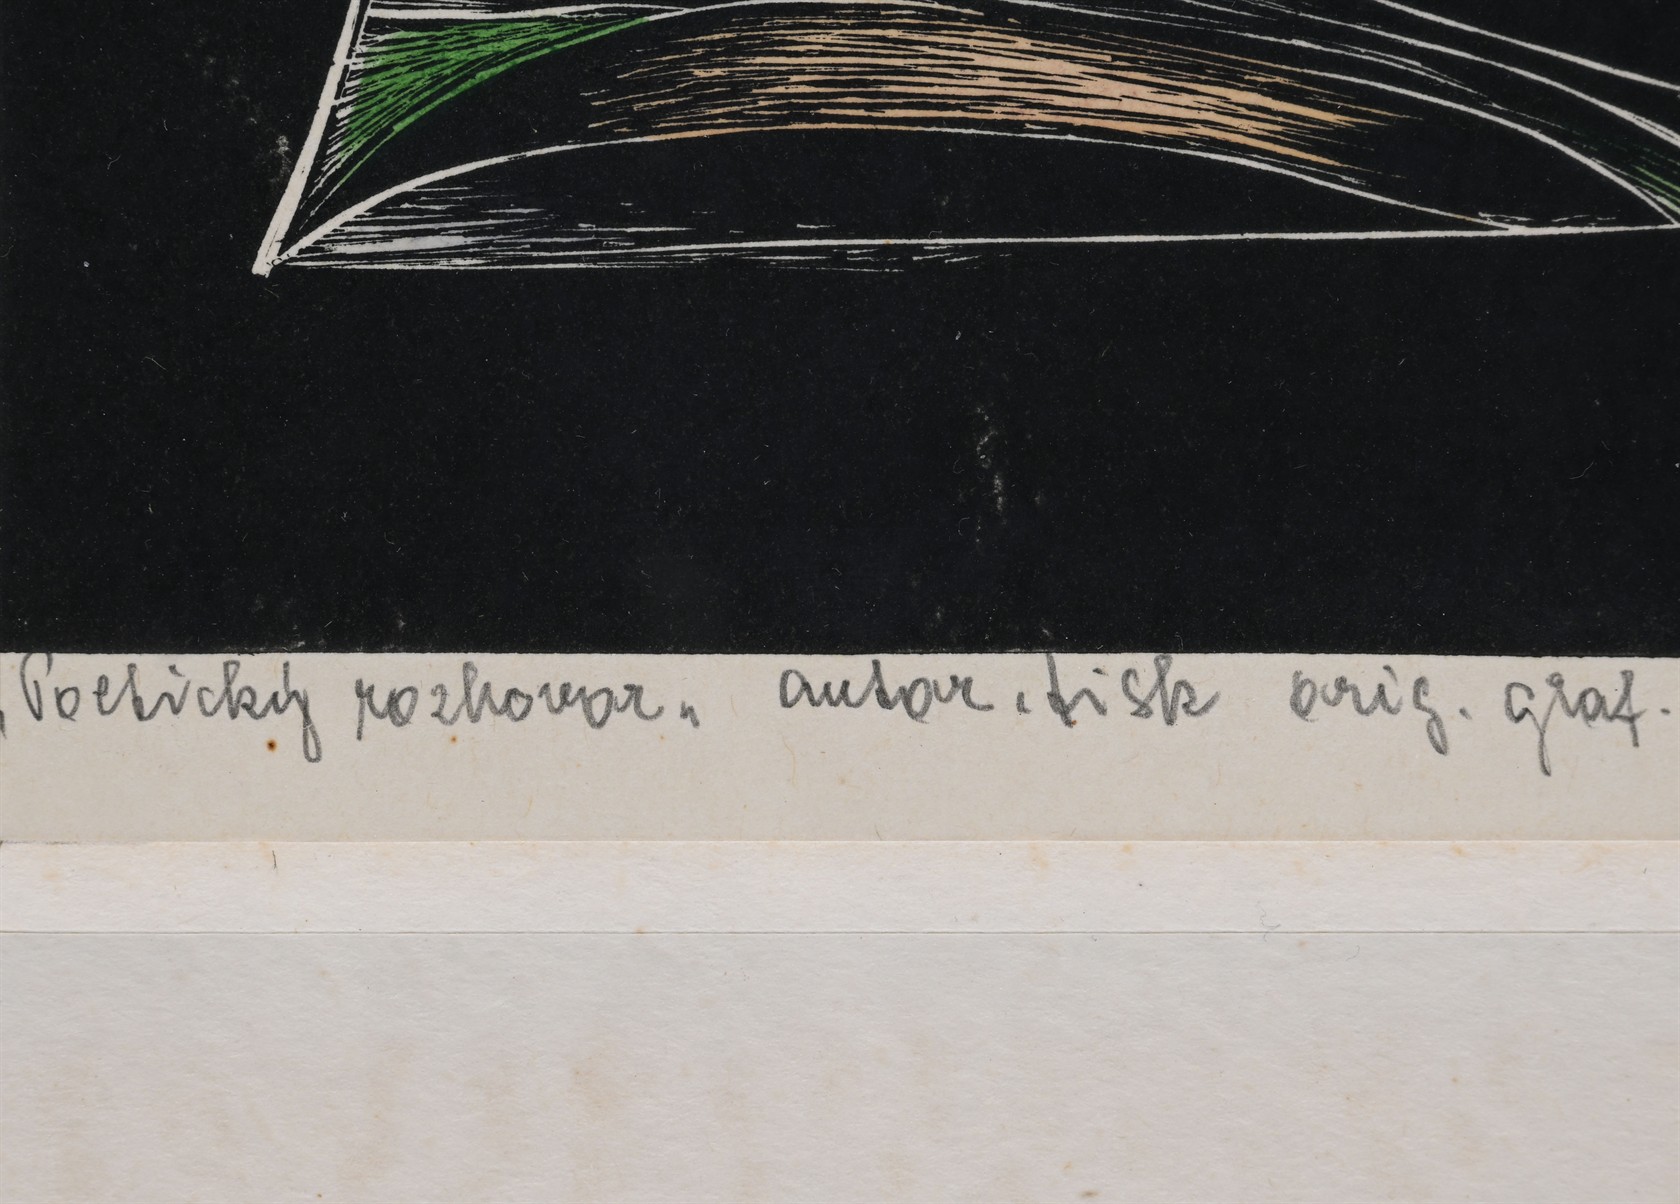 „Poetický rozhovor„ autor. tisk orig. graf.